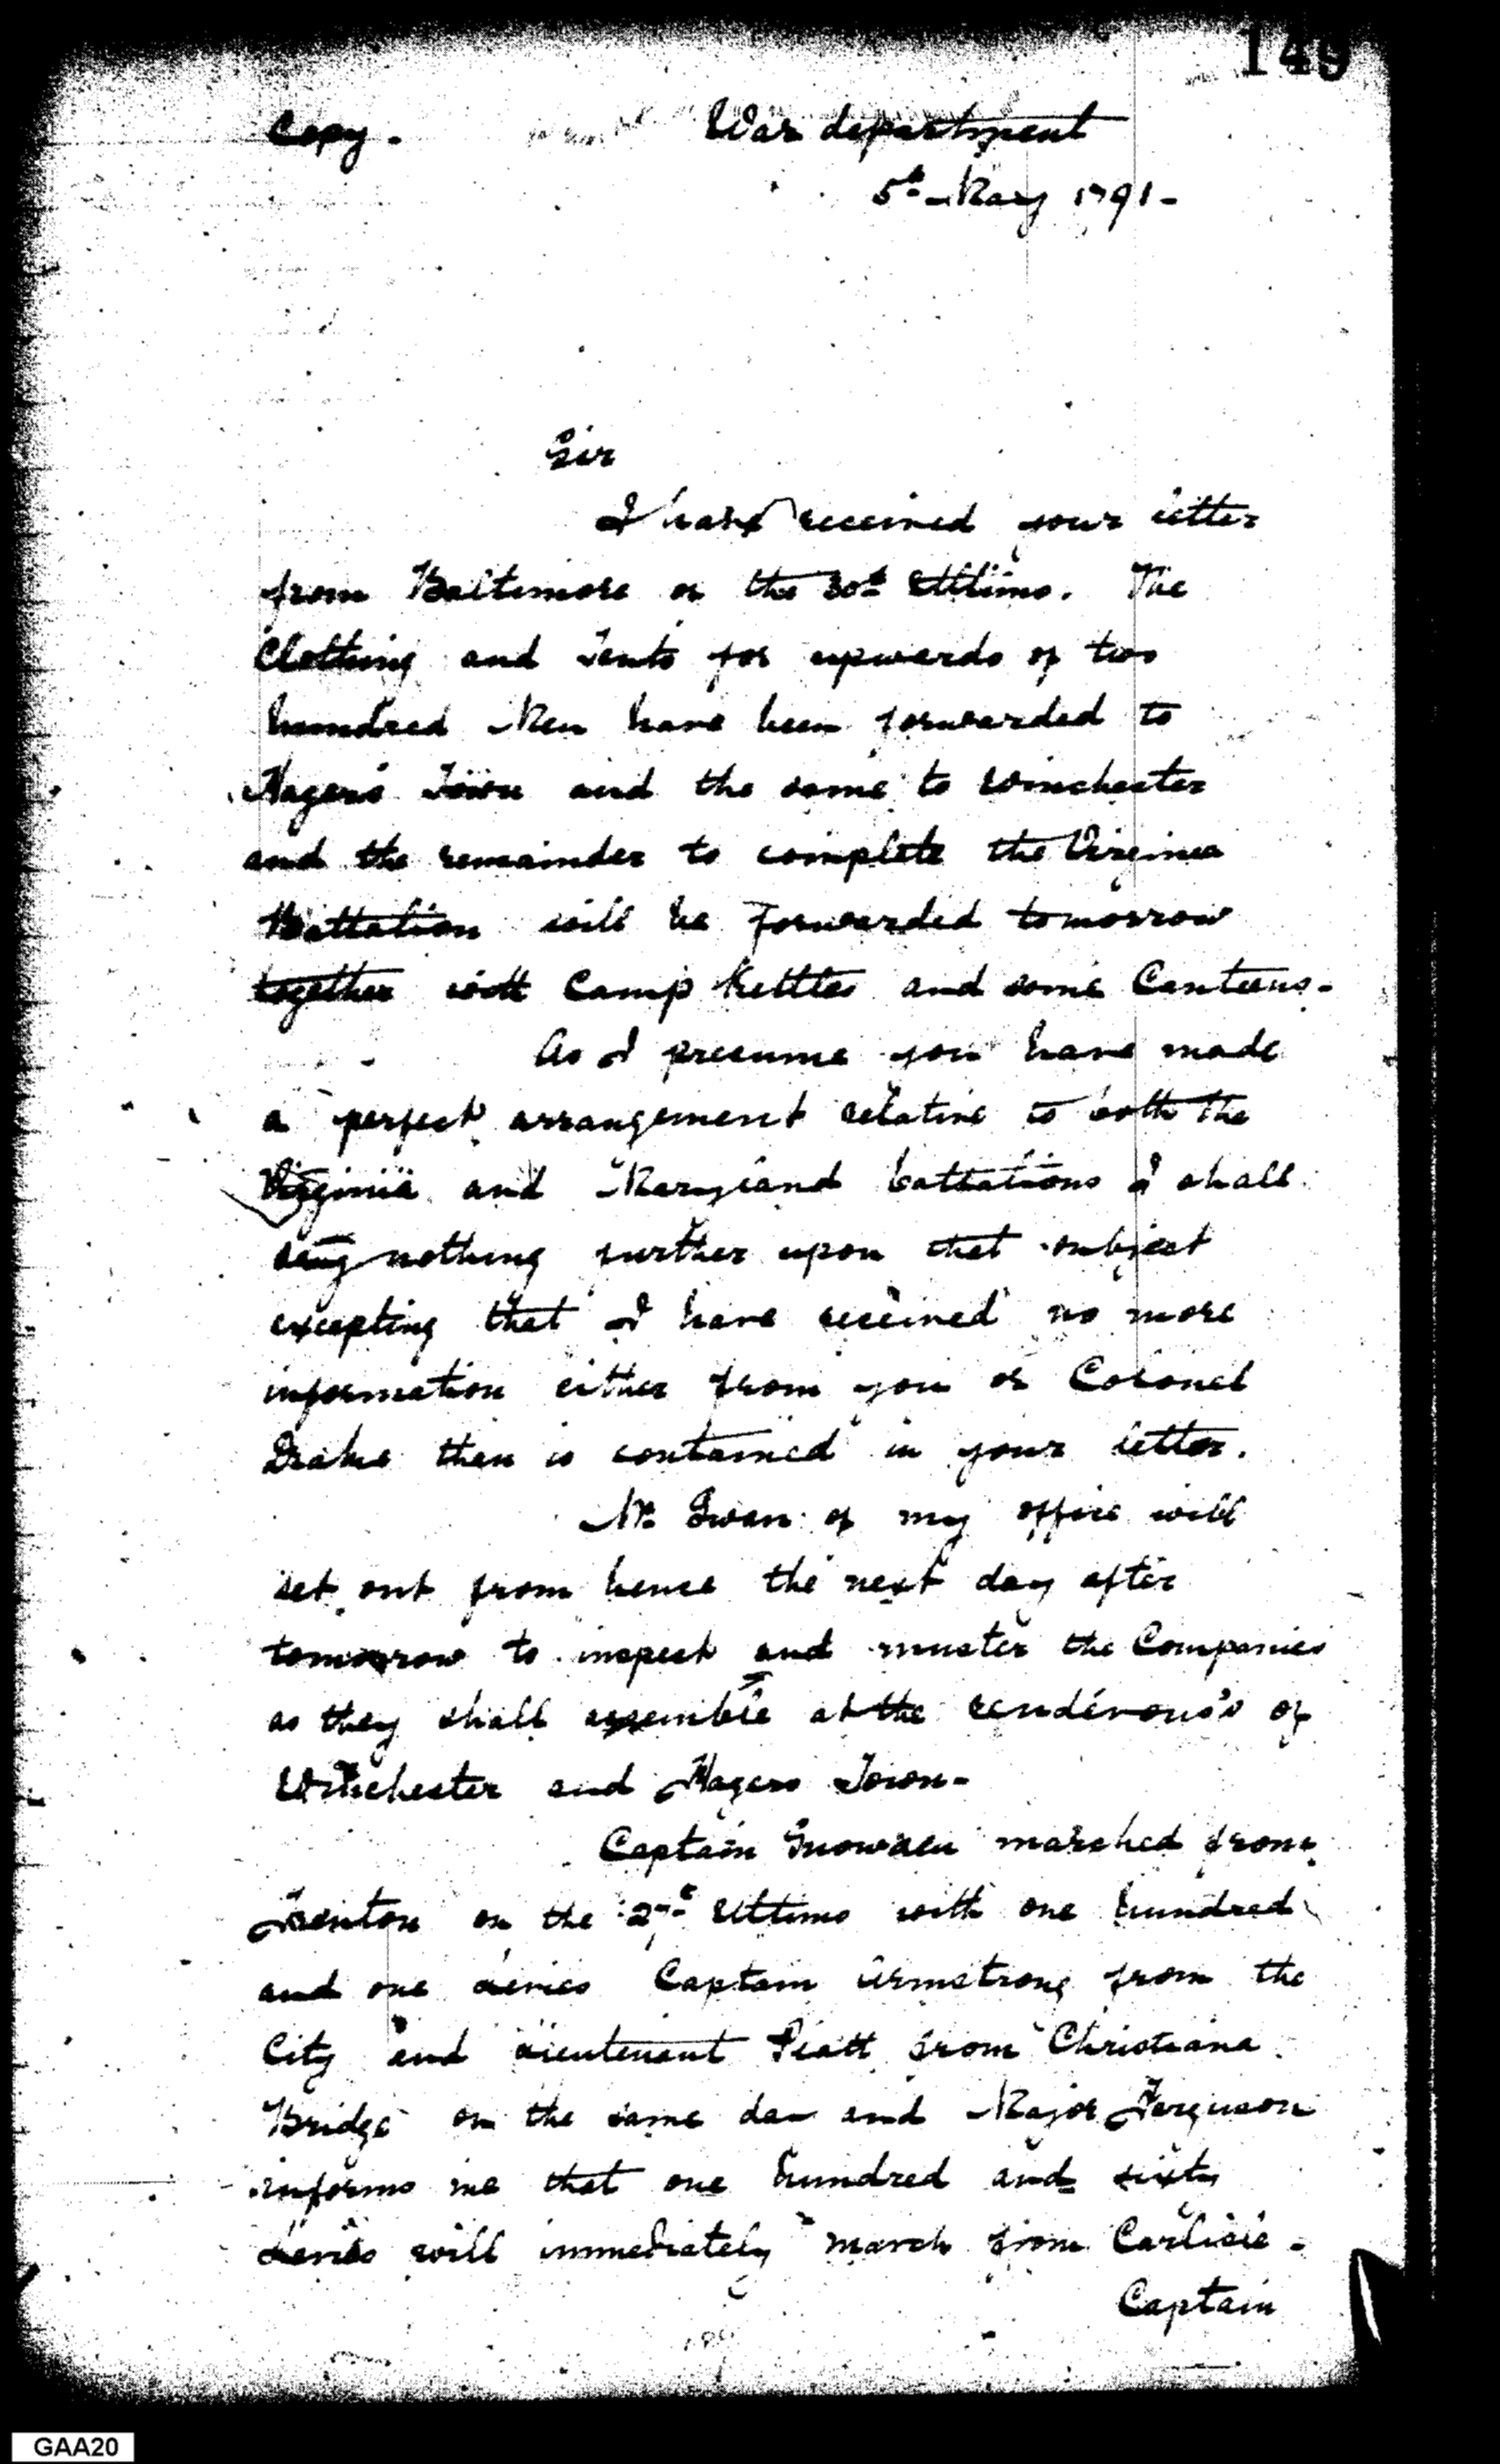 149
Copy.
War department
5th May 1791-
Sir
I have received your letter
from Baltimore of the 30th Ultimo. The
Clothing and Tents for upwards of two
hundred Men have been forwarded to
Hagers Town and the same to Winchester
and the remainder to complete the Virginia
Battalion will be forwarded tomorrow
together with Camp Kettles and some Canteens.
As I presume you have made
a perfect arrangement relative to both the
Virginia and Maryland battalions I shall
say nothing further upon that subject
excepting that I have received no more
information either from you or Colonel
Drake than is contained in your letter.
Mr. Swan of my office will
set out from hence the next day after
tomorrow to inspect and muster the Companies
as they shall assemble at the rendévous's of
Winchester and Hagers Town-
Captain Snowden marched from
Trenton on the Ultimo with one hundred
and one levies Captain Armstrong from the
City and Lieutenant Piatt from Christiana
Bridge on the same day and Major Ferguson
informs me that one hundred and sixty
Levies will immediately march from Carlisle-
Captain
GAA20